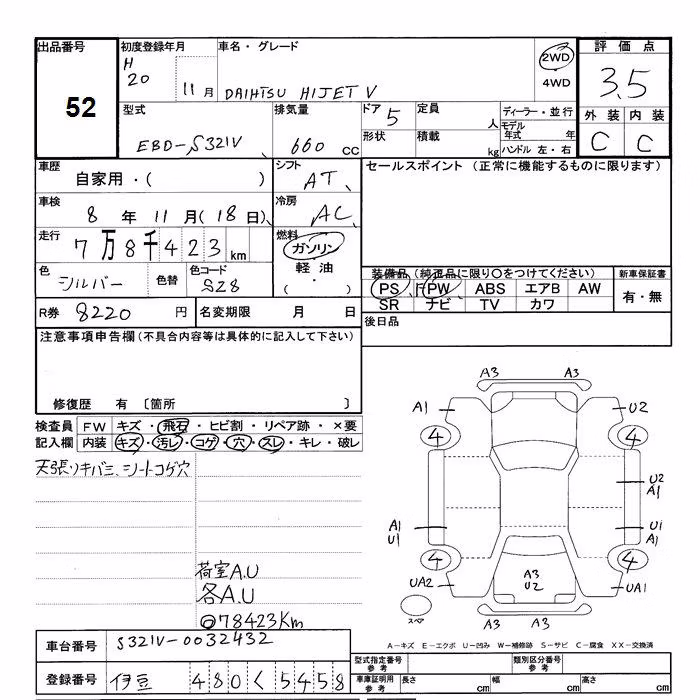 出品番号
52
初度登録年月
H 20 11月
車名・グレード
DAIHTSU HIJET V
2WD
4WD
評価点
3.5
型式
EBD-S321V
排気量
660 cc
ドア 5
形状
定員 人
積載 kg
ディーラー・並行
モデル年式 年
ハンドル 左・右
外装 内装
C C
車歴
自家用・( )
シフト
AT
セールスポイント (正常に機能するものに限ります)
車検
8年 11月(18日)
冷房
AC
走行
7万8千423km
燃料
ガソリン
軽油
( ・ )
色
シルバー
色替
色コード
S28
装備品 (純正品に限り○をつけてください)
PS PW ABS エアB AW
SR ナビ TV カワ
新車保証書
有・無
R券 8220 円
名変期限 月 日
後日品
注意事項申告欄(不具合内容等は具体的に記入して下さい)
修復歴 有 〔箇所 〕
検査員記入欄
FW キズ・飛石・ヒビ割・リペア跡・×要
内装 キズ・汚レ・コゲ・穴・スレ・キレ・破レ
天張リキバミ、シートコゲ穴
荷室A.U
各A.U
◎78423Km
A3 A3
A1 U2
4 4
U2
A1
A1
U1
U1
A1
4 4
A3
U2
UA2 UA1
スペア
A3 A3
A-キズ E-エクボ U-凹み W-補修跡 S-サビ C-腐食 XX-交換済
車台番号 S321V-0032432
登録番号 伊豆 480 く 5458
型式指定番号 参考
類別区分番号 参考
車庫証明用 参考
長さ cm 幅 cm 高さ cm